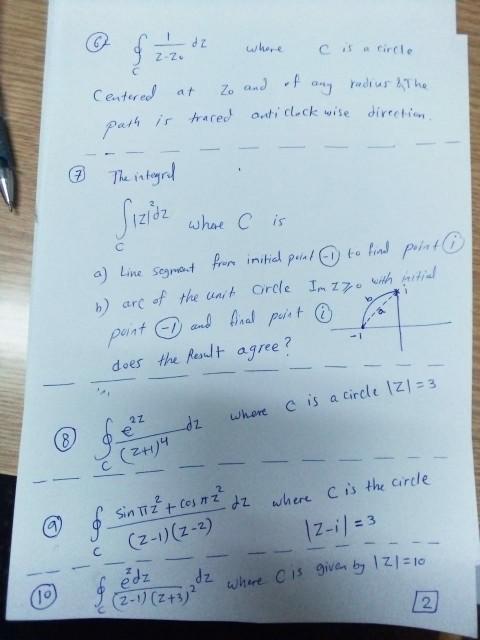 ⑥ ∮_C 1/(z-z₀) dz where C is a circle
Centered at z₀ and of any radius & The
path is traced anticlockwise direction.
⑦ The integral
∫_C |z|² dz where C is
a) Line segment from initial point (-1) to find point (i)
b) arc of the unit circle Im z ≥ 0 with initial
point (-1) and final point (i)
b i
a
-1
does the Result agree?
⑧ ∮_C e^{2z}/(z+1)^4 dz where C is a circle |z| = 3
⑨ ∮_C (sin πz² + cos πz²)/((z-1)(z-2)) dz where C is the circle
|z-i| = 3
⑩ ∮_C e^z dz/((z-1)(z+3)²) dz where C is given by |z| = 10
2